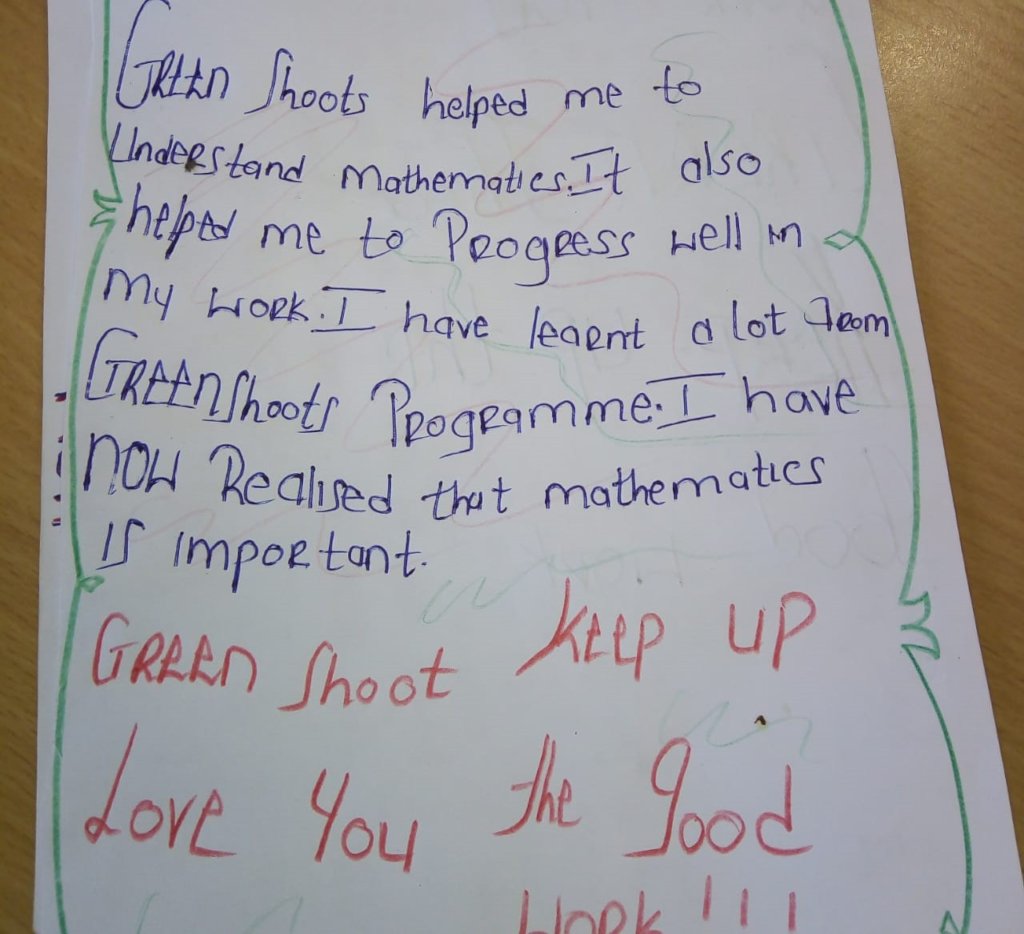 Green Shoots helped me to
Understand mathematics. It also
helped me to Progress well in
my work. I have learnt a lot from
Greenshoots Programme. I have
now Realised that mathematics
is important.
Green Shoot
Love You
keep up
the good
work!!!